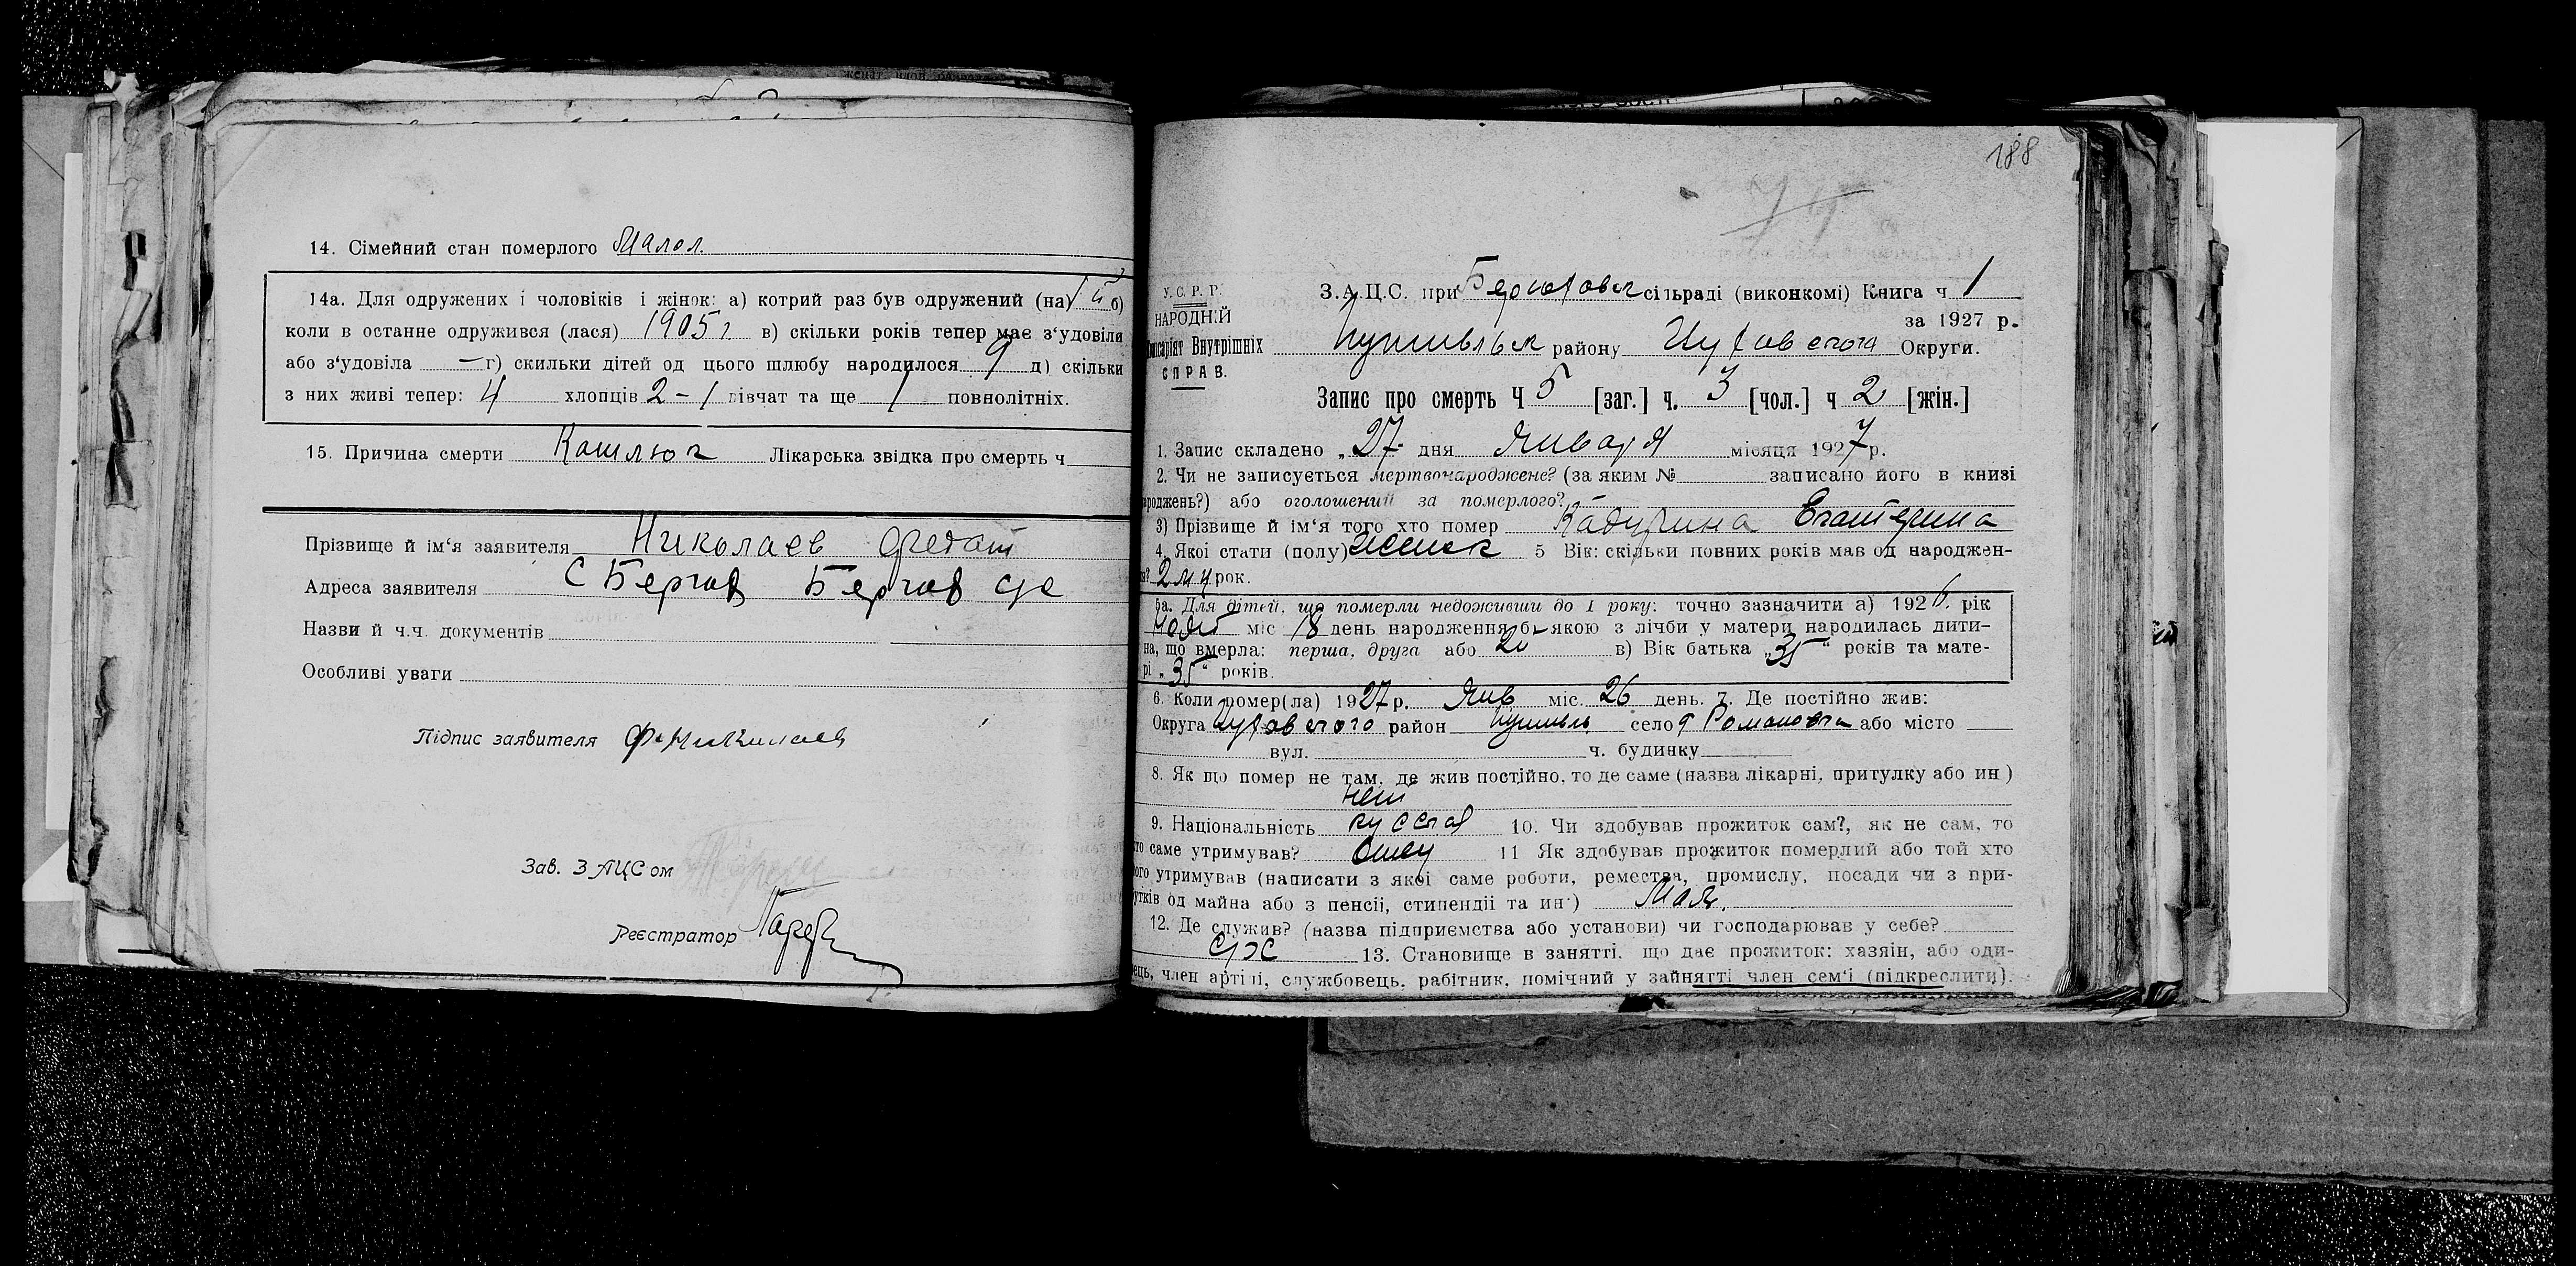 14. Сімейний стан померлого малол.
14а. Для одружених і чоловіків і жінок: а) котрий раз був одружений (на) б)
коли в останне одружився (лася) 1905 г. в) скільки років тепер має з‘удовіли
або з‘удовіла — г) скильки дітей од цього шлюбу народилося 9 д) скільки
з них живі тепер: 4 хлопців 2 - 1 дівчат та ще 1 повнолітніх.
15. Причина смерти Кашлюк Лікарська звідка про смерть ч
Прізвище й ім‘я заявителя Николаев Федот
Адреса заявителя с
Назви й ч.ч. документів
Особливі уваги
Підпис заявителя Ф. Николаев
Зав. ЗАЦСом
Реєстратор
188
У.С.Р.Р.
НАРОДНІЙ
Внутрішніх
СПРАВ.
З.А.Ц.С. при сільраді (виконкомі) Книга ч 1
за 1927 р.
району Округи.
Запис про смерть Ч 5 [заг.] ч. 3 [чол.] ч 2 [жін.]
1. Запис складено „27 дня Января місяця 1927 р.
2. Чи не записується мертвонароджене? (за яким № записано його в книзі
роджень?) або оголошений за померлого?
3) Прізвище й ім‘я того хто помер Екатерина
4. Якоі стати (полу) женск 5 Вік: скільки повних років мав од народжен-
2 м ч рок.
5а. Для дітей, що померли недоживши до 1 року: точно зазначити а) 1926. рік
міс 18 день народження б якою з лічби у матери народилась дити-
на, що вмерла: перша, друга або в) Вік батька „35“ років та мате-
рі „35“ років.
6. Коли помер(ла) 1927 р. Янв міс. 26 день. 7. Де постійно жив:
Округа район Путивль село або місто
вул. ч. будинку
8. Як що помер не там, де жив постійно, то де саме (назва лікарні, притулку або ин)
нет
9. Національність 10. Чи здобував прожиток сам?, як не сам, то
то саме утримував? Отец 11 Як здобував прожиток померлий або той хто
ого утримував (написати з якоі саме роботи, ремества, промислу, посади чи з при-
утків од майна або з пенсіі, стипендіі та ин·)
12. Де служив? (назва підприємства або установи) чи господарював у себе?
схс 13. Становище в занятті, що дає прожиток: хазяін, або оди-
ець, член артілі, службовець, рабітник, помічний у зайнятті член сем‘і (підкреслити).